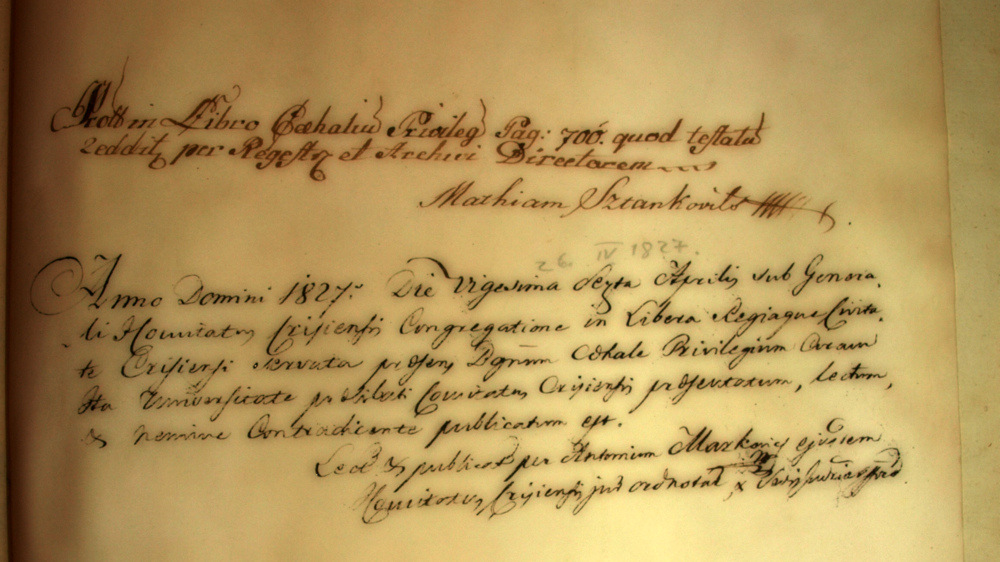 Prot in Libro Cæhaliu Privileg Pag: 700. quod testatu
Reddit, per Regestr et Archivi Directorem
Mathiam Sztankovits
26. IV 1827.
Anno Domini 1827. Die Vigesima Sexta Aprilis sub Genera
li Comitatus Crisiensis Congregatione in Libera Regiaque Civita
te Crisiensi servata præsens Privilegium Coram
Universitate Comitatus Crisiensis præsentatum, lectum,
& nemine Contradicente publicatum est.
Lect & publicat per Antonium Markovics ejusdem
Comitatus Crisiensis